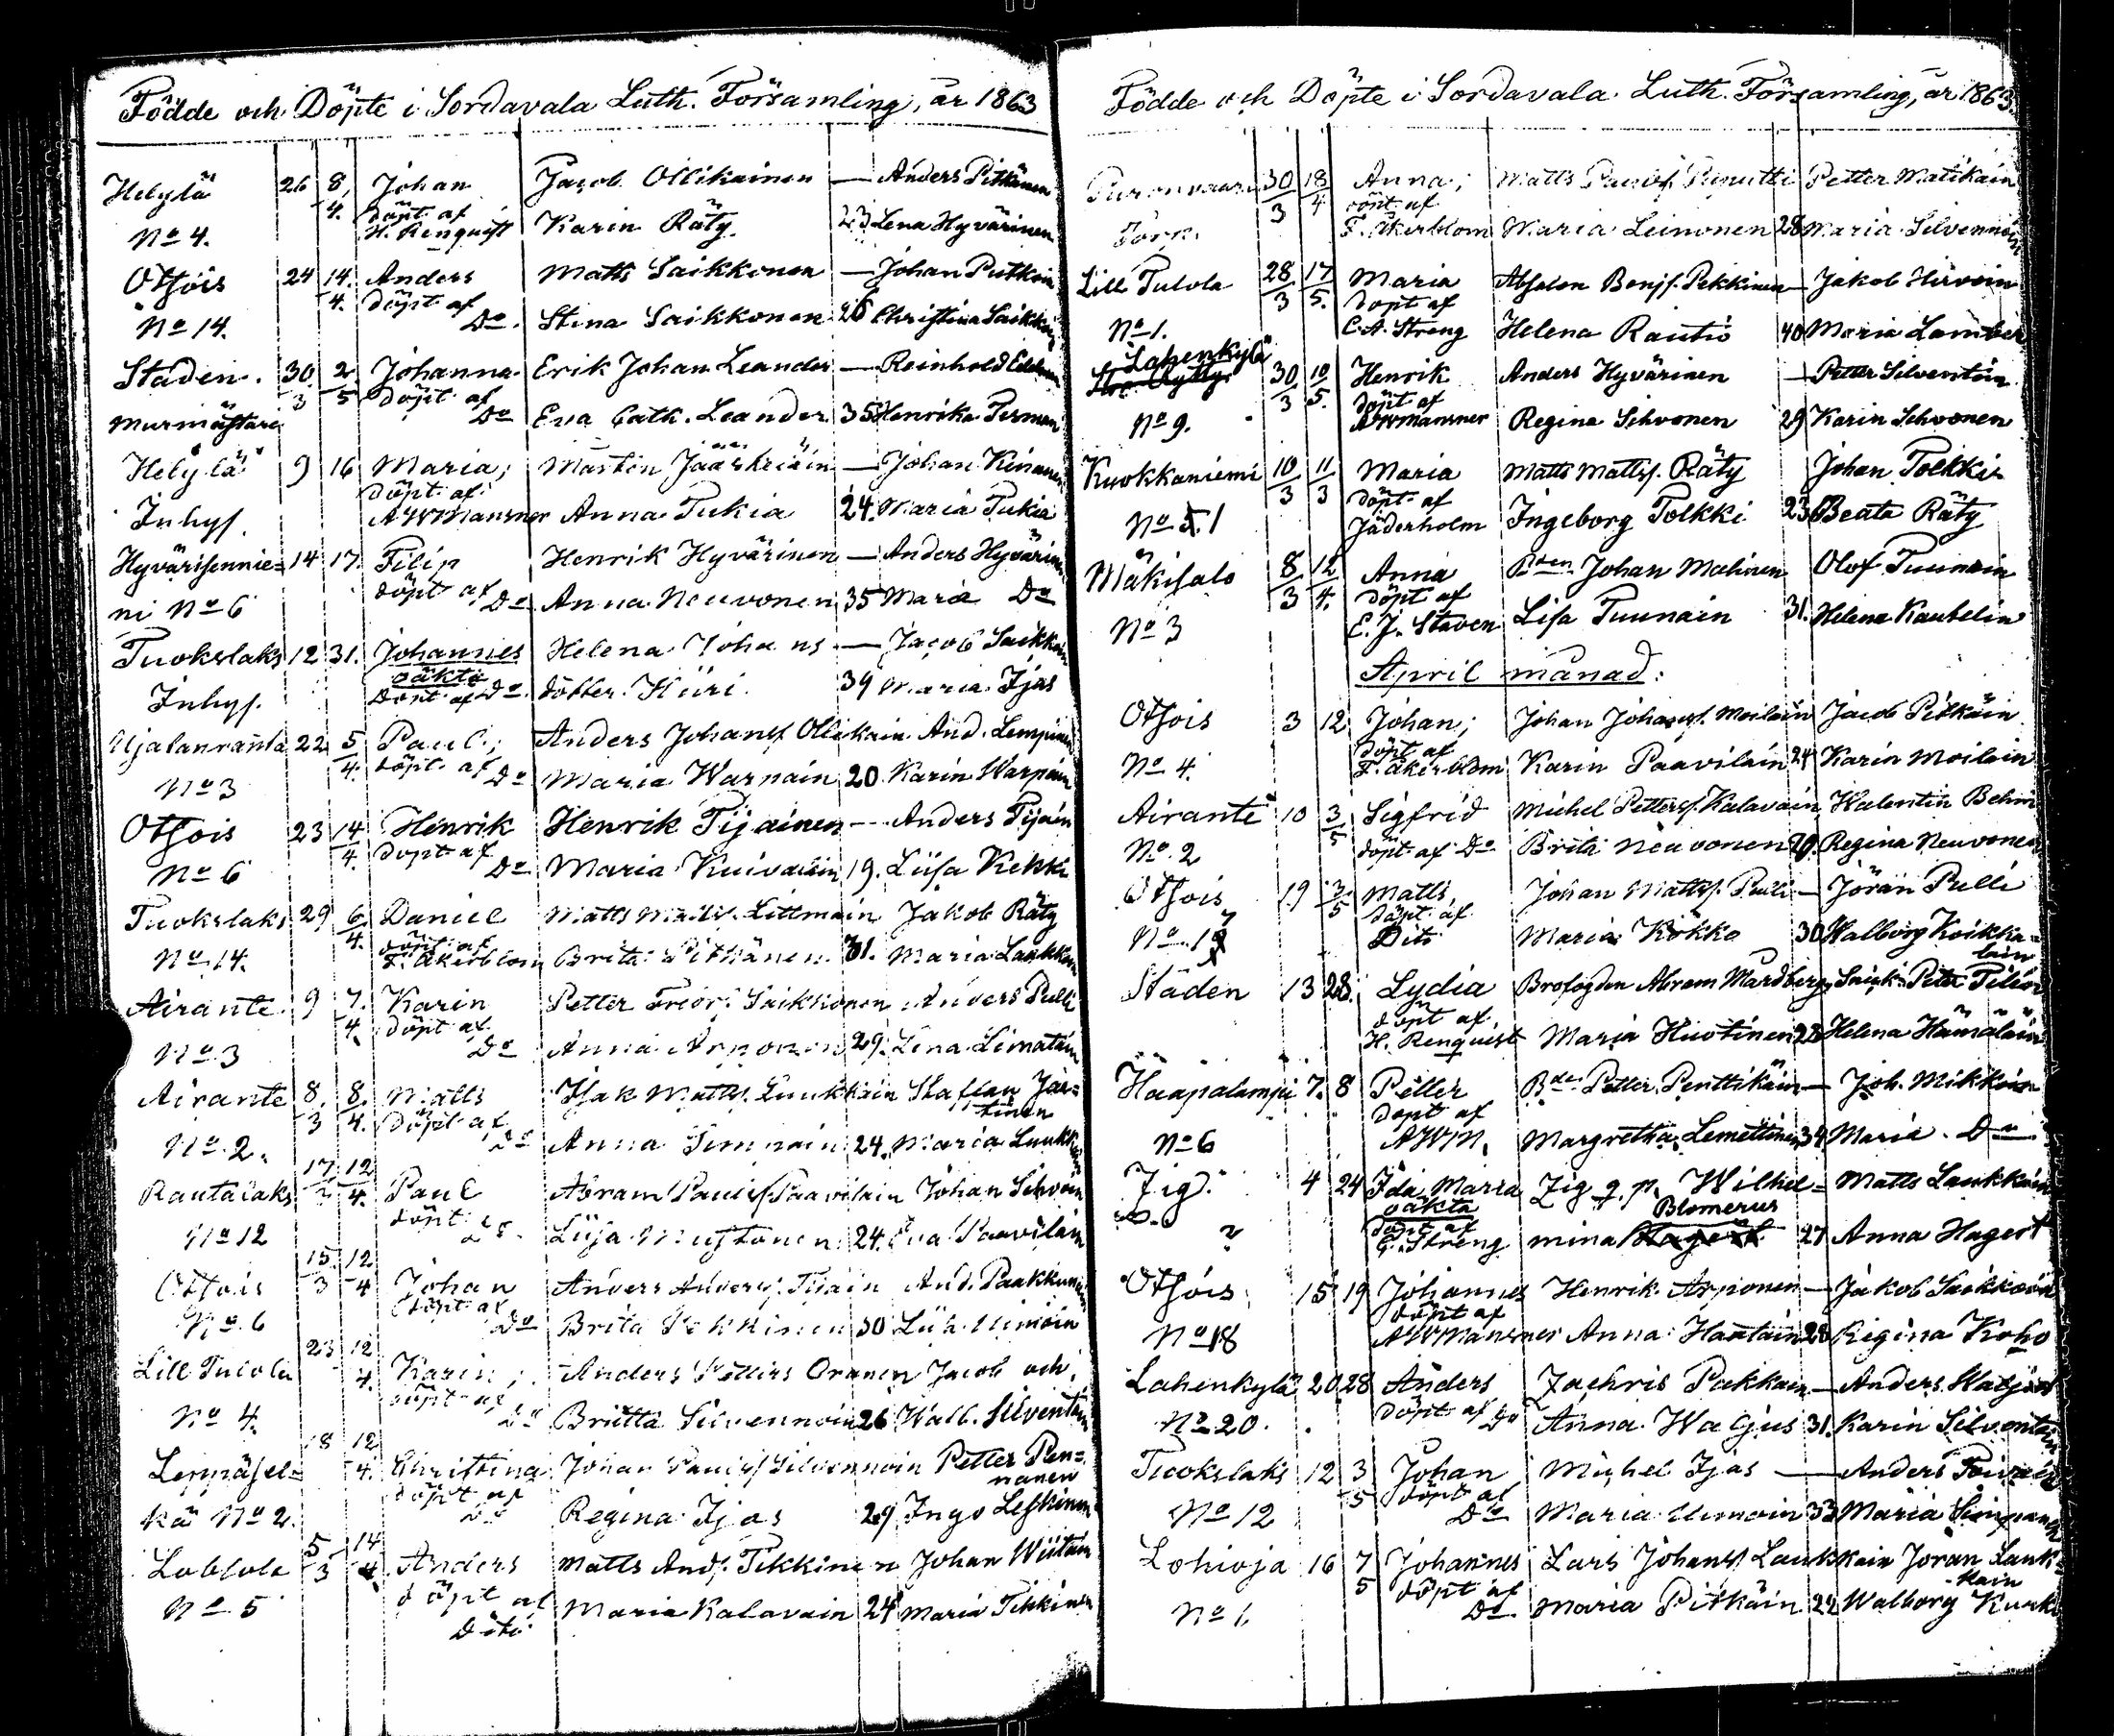 Födde och Döpte i Sordavala Luth. Församling, år 1863
Helylä 26 8/4. Johan Jacob Ollikainen — Anders Pitkänen
No 4. döpt af H. Renquist Karin Räty 23 Lena Hyvärinen
Otsois 24 14./4. Anders Matts Saikkonen — Johan Putkoin
No 14. döpt af Do. Stina Saikkonen 26 Christina Saikkoin
Staden. 30/3 2/5 Johanna Erik Johan Leander — Reinhold
Murmästare döpt af Do Eva Cath. Leander 35 Henrika Perman
Helylä 9 16 Maria; Martin Jääskeläin — Johan Kinanen
Inhys. döpt af AWMansner Anna Tukia 24. Maria Tukia
Hyvärisennie= 14 17. Filip Henrik Hyvärinen — Anders Hyvärinen
mi No 6 döpt af Do Anna Neuvonen 35 Maria Do
Tuokslaks 12 31. Johannes Helena Johans — Jacob Saikkoin
Inhys. oäkta döpt af Do dotter Hiiri 39 Maria Ijas
Ujalanranta 22 5/4. Paul; Anders Johans Ollikain And. Lempinen
No 3 döpt af Do Maria Warpain 20. Karin Warpain
Otsois 23 14/4. Henrik Henrik Tijainen — Anders Tijain
No 6 döpt af Do Maria Kuivalain 19. Liisa Kekki
Tuokslaks 29 6/4. Daniel Matts Matts. Littmain Jakob Räty
No 14. döpt af F. Åkerblom Brita Pitkänen 31. Maria Laukkain
Airante 9 7./4. Karin Petter Fredr. Saikkonen Anders Pulli
No 3 döpt af Do Anna Arponen 29. Lena Limatain
Airante 8/3 8./4. Matts Isak Matts. Luukkain Staffan Jär=
tinen
No 2. döpt af Do Anna Simmain 24. Maria Luukkain
Rautalaks 17/3 12/4. Paul Abram Pauls Paavilain Johan Sihvoin
No 12 döpt Do. Liisa Mustonen 24. Eva Paavilain
Otsois 15/3 12/4 Johan Anders Anders. Tijain And. Paakkunain
No 6 döpt af Do Brita Pekkinen 30
Lill Tulola 23 12/4. Karin; Anders Petters Oranen Jacob och
No 4. döpt af Do Britta Silvennoin 26 Walb. Silventoin
Leppäsel= 18 12/4. Christina Johan Pauls Silvennoin Petter Pen=
nanen
kä No 2. döpt af Do Regina Ijas 29 Inga Leskinen
5/3 14/4 Anders Matts Ands. Tikkinen Johan Wiitain
No 5 döpt af Dito Maria Kalavain 24 Maria Tikkinen
Födde och Döpte i Sordavala Luth. Församling, år 1863
Puronvaara 30/3 18/4 Anna; Matts Pauls. Petter Matikain
Torp. döpt af F. Åkerblom Maria Leinonen 28 Maria Silvennoin
Lill Tulola 28/3 17/5. Maria Absalon Benjs. Pekkinen — Jakob Hirvoin
No 1. döpt af C. A. Streng Helena Rautio 40 Maria Lamber
Lahenkylä 30/3 10/5. Henrik Anders Hyvärinen — Petter Silventoin
No 9. döpt af AWMansner Regina Sihvonen 29 Karin Sihvonen
Kuokkaniemi 10/3 11/3 Maria Matts Mattss. Räty Johan Tolkki
No 51 döpt af Jäderholm Ingeborg Tolkki 23 Beata Räty
Mäkisalo 8/3 12/4. Anna Bden Johan Malinen Olof Tuunain
No 3 döpt af E. J. Staven Lisa Tuunain 31. Helena Kaubelin
April månad:
Otsois 3 12 Johan; Johan Johanss. Moilain Jacob Pitkäin
No 4. döpt af F. Åkerblom Karin Paavilain 24 Karin Moilain
Airante 10 3/5 Sigfrid Michel Petterss. Kalavain Walentin Behm
No 2 döpt af Do Brita Neuvonen 29. Regina Neuvonen
Otsois 19 3/5 Matts, Johan Mattss. Pulli — Jöran Pulli
No 17 döpt af Dito Maria Kökko 30 Walborg Koikka=
lain
Staden 13 28. Lydia Brofogden Abram Mardberg Petter
döpt af H. Renquist Maria Huotinen 28 Helena Hämäläin
Haapalampi 7. 8 Petter Bden Petter Penttikäin — Joh. Mikkoin
No 6 döpt af AWM. Margretha Lemettinen 34. Maria Do
Zig. 4 24 Ida Maria Zig q. p. Wilhel= Matts Laukkain
? oäkta döpt af C. Streng mina Blomerus 27 Anna Hagert
Otsois 15 19 Johannes Henrik Arponen — Jakob Saikkoin
No 18 döpt af AWMansner Anna Hautain 28 Regina Koho
Lahenkylä 20 28 Anders Zachris Pakkain — Anders Waljus
No 20. döpt af Do Anna Waljus 31. Karin Silventoin
Tuokslaks 12 3/5 Johan Michel Ijas — Anders
No 12 döpt af Do Maria Uimoin 33 Maria Simpanen
Lohioja 16 7/5 Johannes Lars Johanss Laukkain Jöran Lauk=
kain
No 1. döpt af Do Maria Pitkäin 22 Walborg Kurki